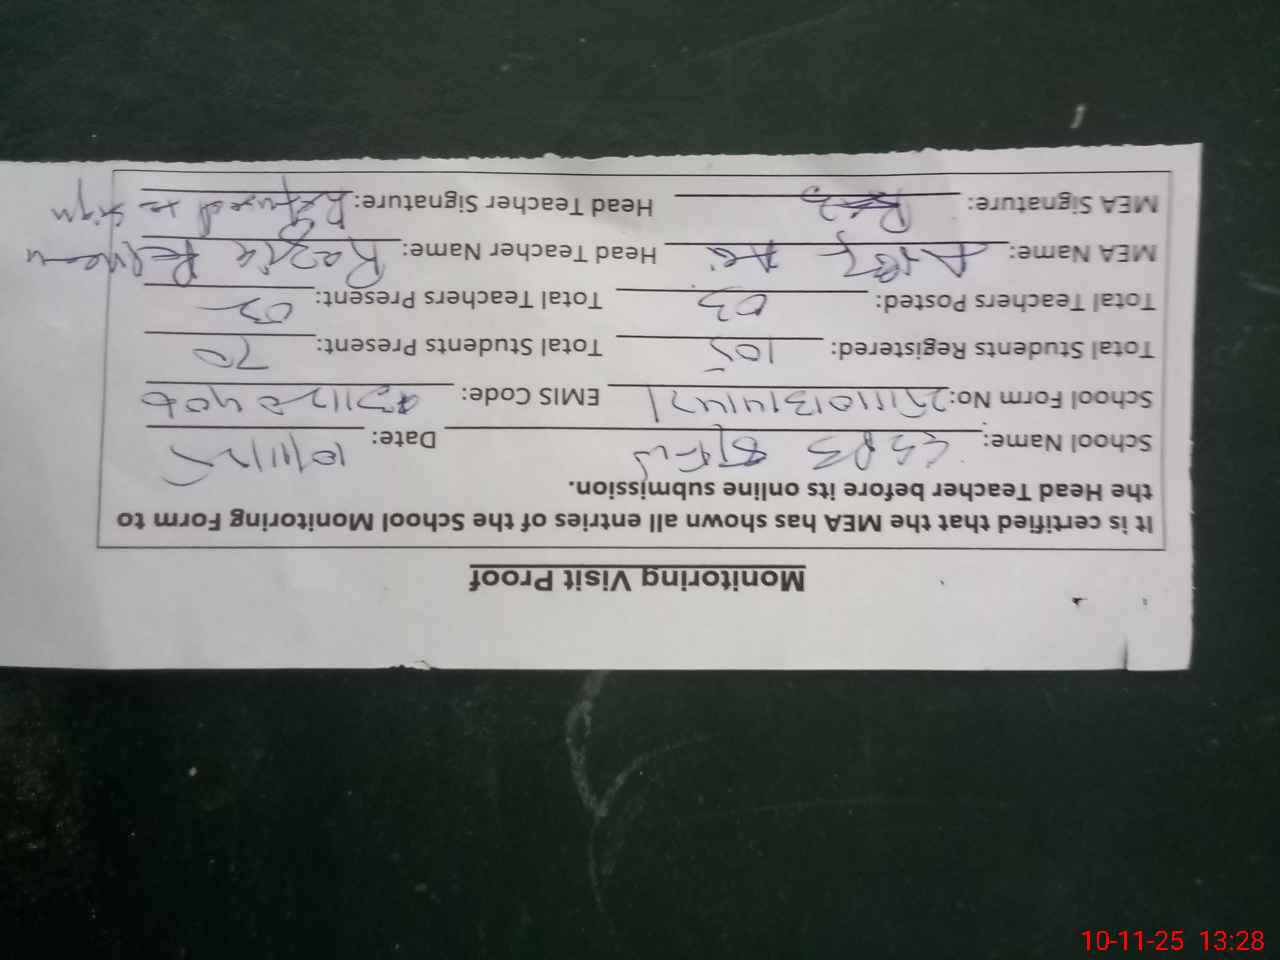 Monitoring Visit Proof
It is certified that the MEA has shown all entries of the School Monitoring Form to
the Head Teacher before its online submission.
School Name: Date: 10/11/25
School Form No: EMIS Code:
Total Students Registered: 105 Total Students Present: 70
Total Teachers Posted: 03 Total Teachers Present: 03
MEA Name: Head Teacher Name: Razia
MEA Signature: Head Teacher Signature: Refused to sign
10-11-25 13:28